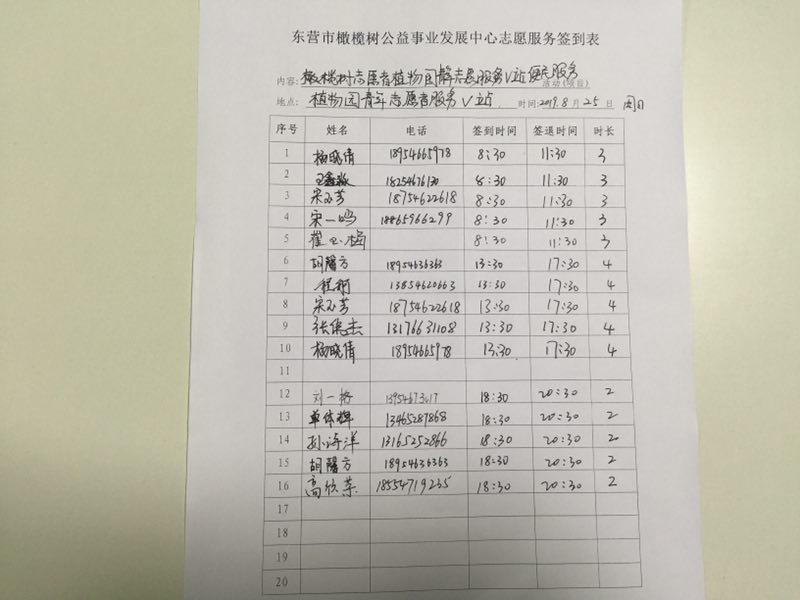 东营市橄榄树公益事业发展中心志愿服务签到表
内容:橄榄树志愿者植物园 志愿服务V站便民服务 活动(项目)
地点:植物园青年志愿者服务V站 时间:2019.8月25日 周日
序号 姓名 电话 签到时间 签退时间 时长
1 杨晓倩 18954665978 8:30 11:30 3
2 王鑫淼 18254676130 8:30 11:30 3
3 宋玉芳 18754622618 8:30 11:30 3
4 宋一鸣 18865966299 8:30 11:30 3
5 崔玉梅 8:30 11:30 3
6 胡馨方 18954636363 13:30 17:30 4
7 程 13854620663 13:30 17:30 4
8 宋玉芳 18754622618 13:30 17:30 4
9 张 杰 13176631108 13:30 17:30 4
10 杨晓倩 18954665978 13:30 17:30 4
11
12 刘一格 18:30 20:30 2
13 单体 13465289868 18:30 20:30 2
14 孙海洋 13165252866 18:30 20:30 2
15 胡馨方 18954636363 18:30 20:30 2
16 高欣荣 18554719235 18:30 20:30 2
17
18
19
20